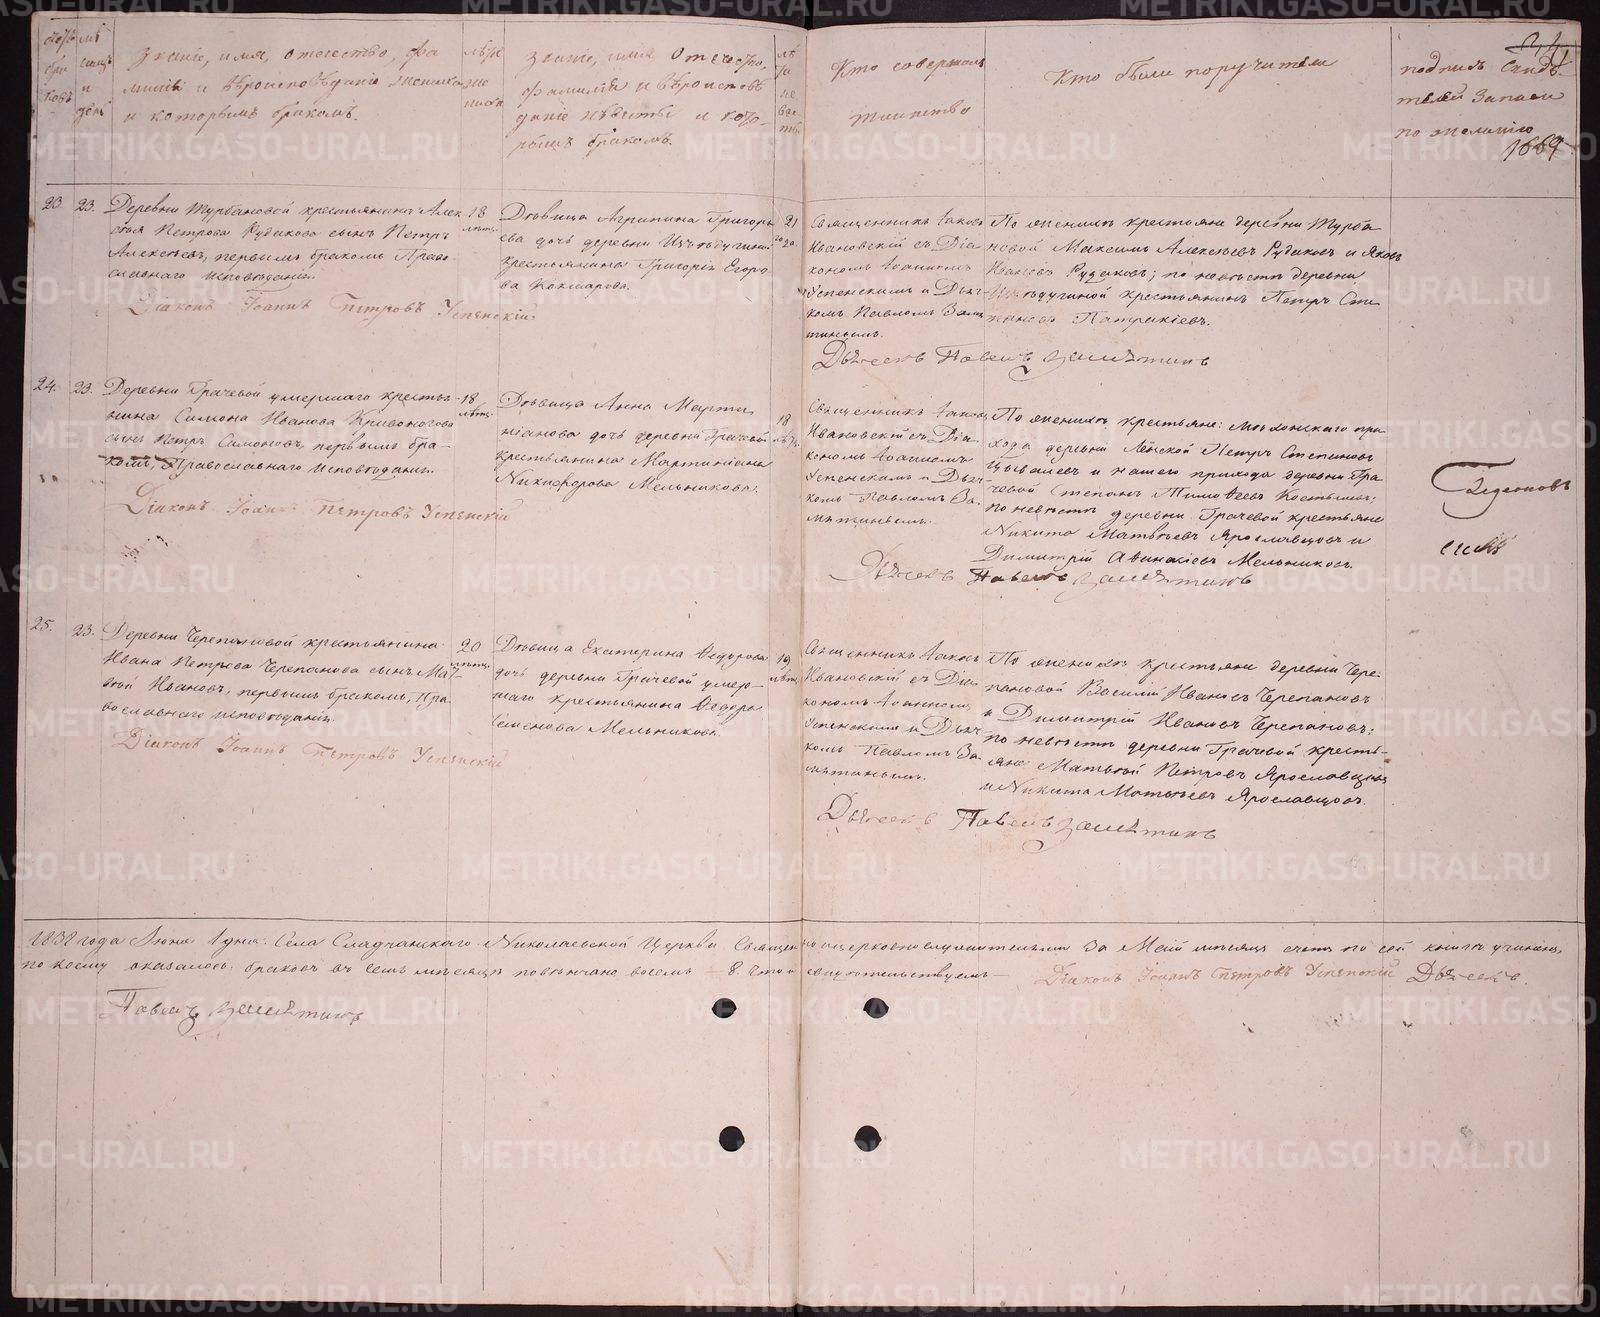 мѣсяцъ и день
званіе, имя, отечество, фамилія и вѣроисповѣданіе жениха и которымъ бракомъ.
званіе, имя, отечество,
фамилія и вѣроисповѣ
даніе невѣсты и кото-
рымъ бракомъ.
Кто совершалъ
таинство
Кто были поручители
подпись свидѣ
телей записи
по желанію
1669
23. 23.
Деревни Журбановой крестьянина Алек
сѣя Петрова Рудакова сынъ Петръ
Алексѣевъ, первымъ бракомъ Право
славнаго исповѣданія.
Діаконъ Іоаннъ Петровъ Успенскій.
18
Дѣвица Агрипина Григорь
ева дочь деревни
крестьянина Григорія Егоро
ва Кокшарова.
21
Священникъ Іаковъ
Ивановскій съ Діа
кономъ Іоанномъ
Успенскимъ и Дьяч
комъ Павломъ Замя
тинымъ.
По женихѣ крестьяне деревни Журба
новой Максимъ Алексѣевъ Рудаковъ и Яковъ
Ивановъ Рудаковъ; по невѣстѣ деревни
крестьянинъ Петръ Сте
пановъ Патракіевъ.
Дьячекъ Павелъ Замятинъ
24. 23.
Деревни Грачевой умершаго крестья
нина Симона Иванова Кривоногова
сынъ Петръ Симоновъ, первымъ бра-
комъ, Православнаго исповѣданія.
Діаконъ Іоаннъ Петровъ Успенскій
18
лѣтъ.
Дѣвица Анна Марти
ніанова дочь деревни Грачевой
крестьянина Мартиніана
Никифорова Мельникова.
18
Священникъ Іаковъ
Ивановскій съ Діа
кономъ Іоанномъ
Успенскимъ и Дьяч
комъ Павломъ За
мятинымъ.
По женихѣ крестьяне: при
хода деревни Петръ Степановъ
и нашего прихода деревни Гра
чевой Степанъ Тимофеевъ Костылевъ;
по невѣстѣ деревни Грачевой крестьяне
Никита Матвѣевъ Ярославцовъ и
Димитрій Афанасіевъ Мельниковъ.
Дьячекъ Павелъ Замятинъ
25. 23.
Деревни Черепановой крестьянина
Ивана Петрова Черепанова сынъ Мат-
вѣй Ивановъ, первымъ бракомъ, Пра
вославнаго исповѣданія.
Діаконъ Іоаннъ Петровъ Успенскій
20
лѣтъ.
Дѣвица Екатерина Федорова
дочь деревни Грачевой умер-
шаго крестьянина Федора
Семенова Мельникова.
19
лѣтъ.
Священникъ Іаковъ
Ивановскій съ Діа
кономъ Іоанномъ
Успенскимъ и Дьяч
комъ Павломъ За
мятинымъ.
По женихѣ крестьяне деревни Чере
пановой Василій Ивановъ Черепановъ
и Димитрій Ивановъ Черепановъ;
по невѣстѣ деревни Грачевой кресть-
яне Матвѣй Петровъ Ярославцовъ
и Никита Матвѣевъ Ярославцовъ.
Дьячекъ Павелъ Замятинъ
1838 года Іюня 1 дня. Села Сладчанскаго Николаевской Церкви Священноцерковнослужителями за Май мѣсяцъ счетъ по сей книгѣ учиненъ,
по коему оказалось: браковъ въ семъ мѣсяцѣ повѣнчано восемь 8. Что и свидѣтельствуемъ Діаконъ Іоаннъ Петровъ Успенскій Дьячекъ
Павелъ Замятинъ
METRIKI.GASO-URAL.RU